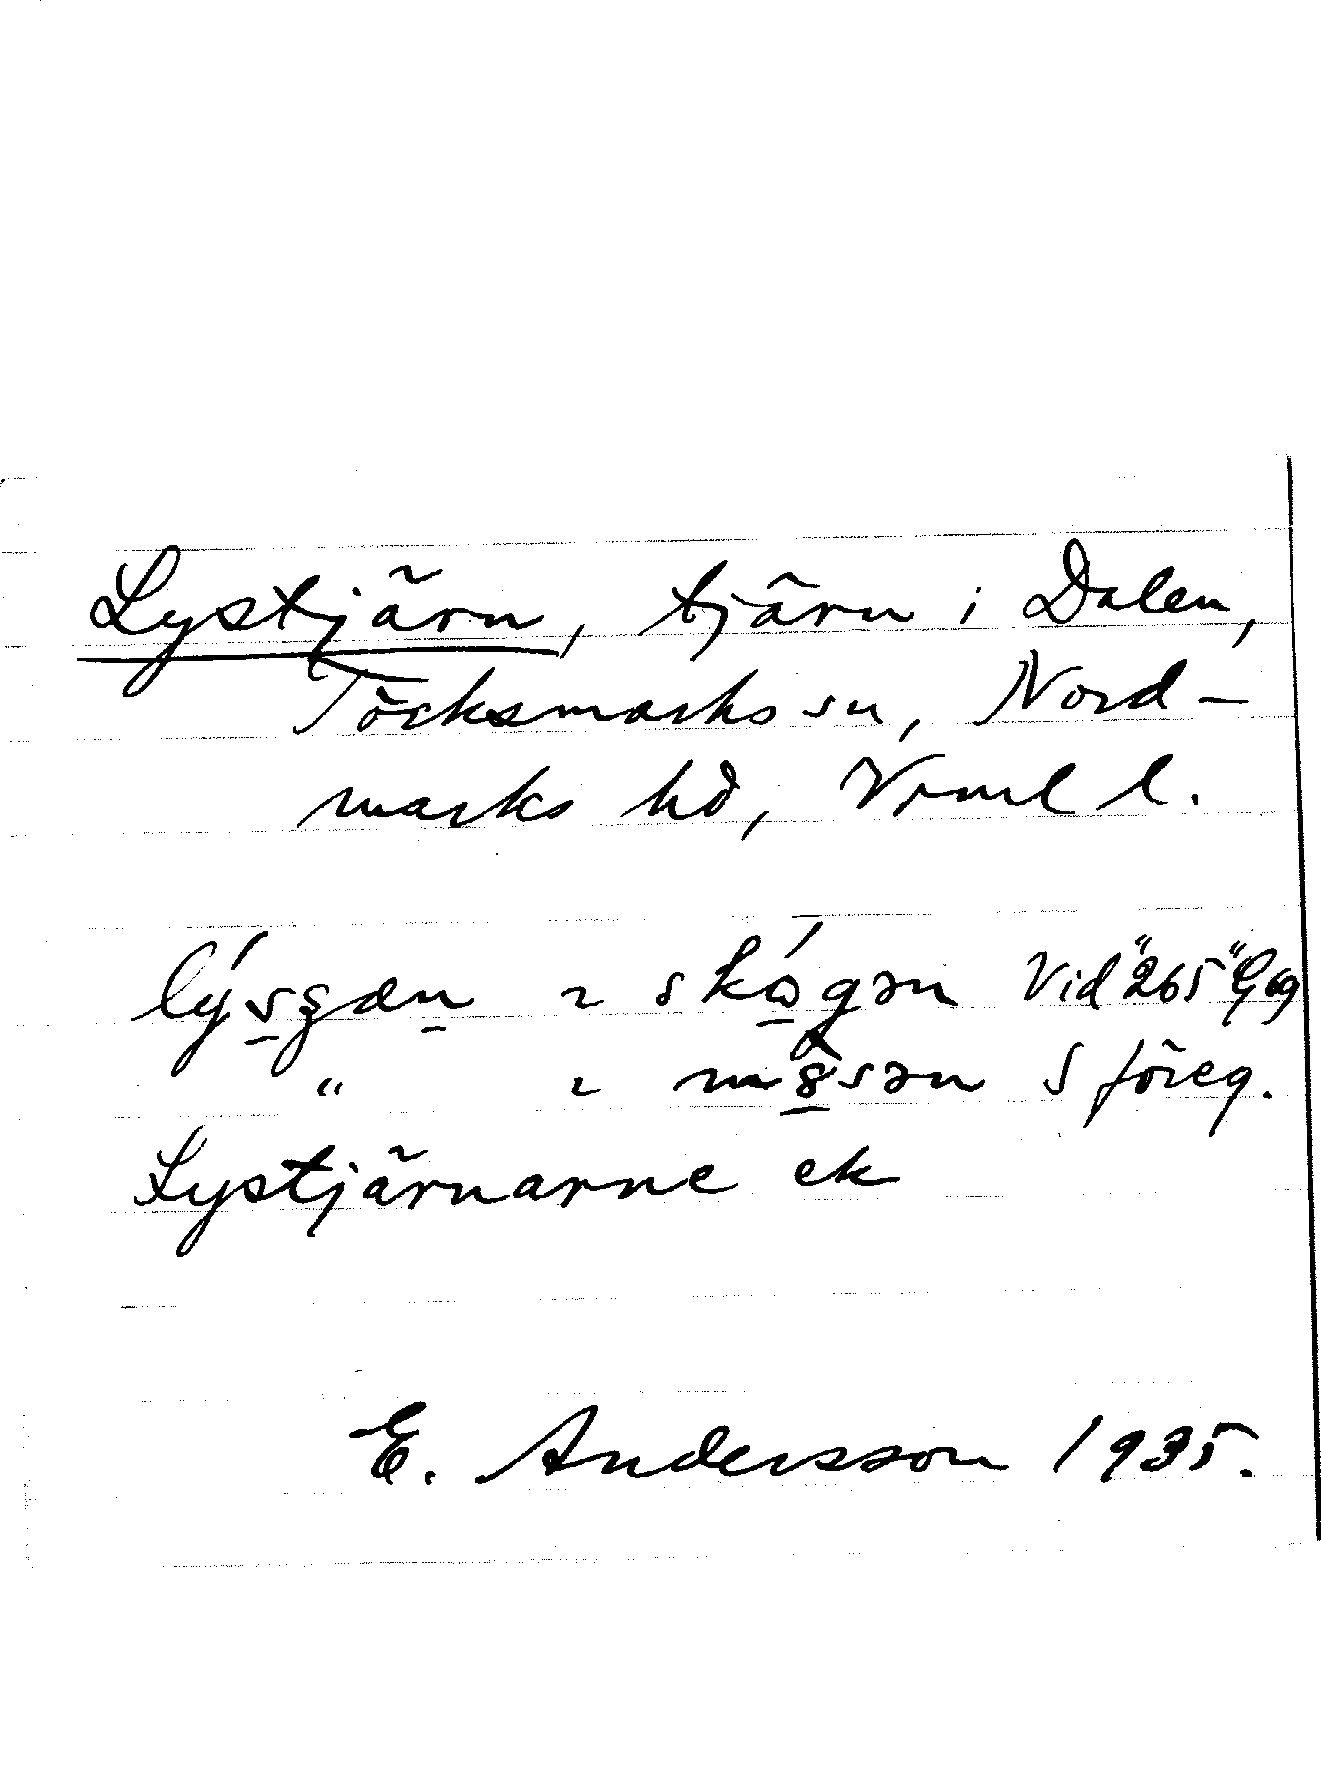 Lystjärn, tjärn i Dalen,
Töcksmarks sn, Nord-
marks hd, Vrml l.
skógən Vid "265" Gg
" ɩ sən S föreg.
Lystjärnarne ek
E. Andersson 1935.